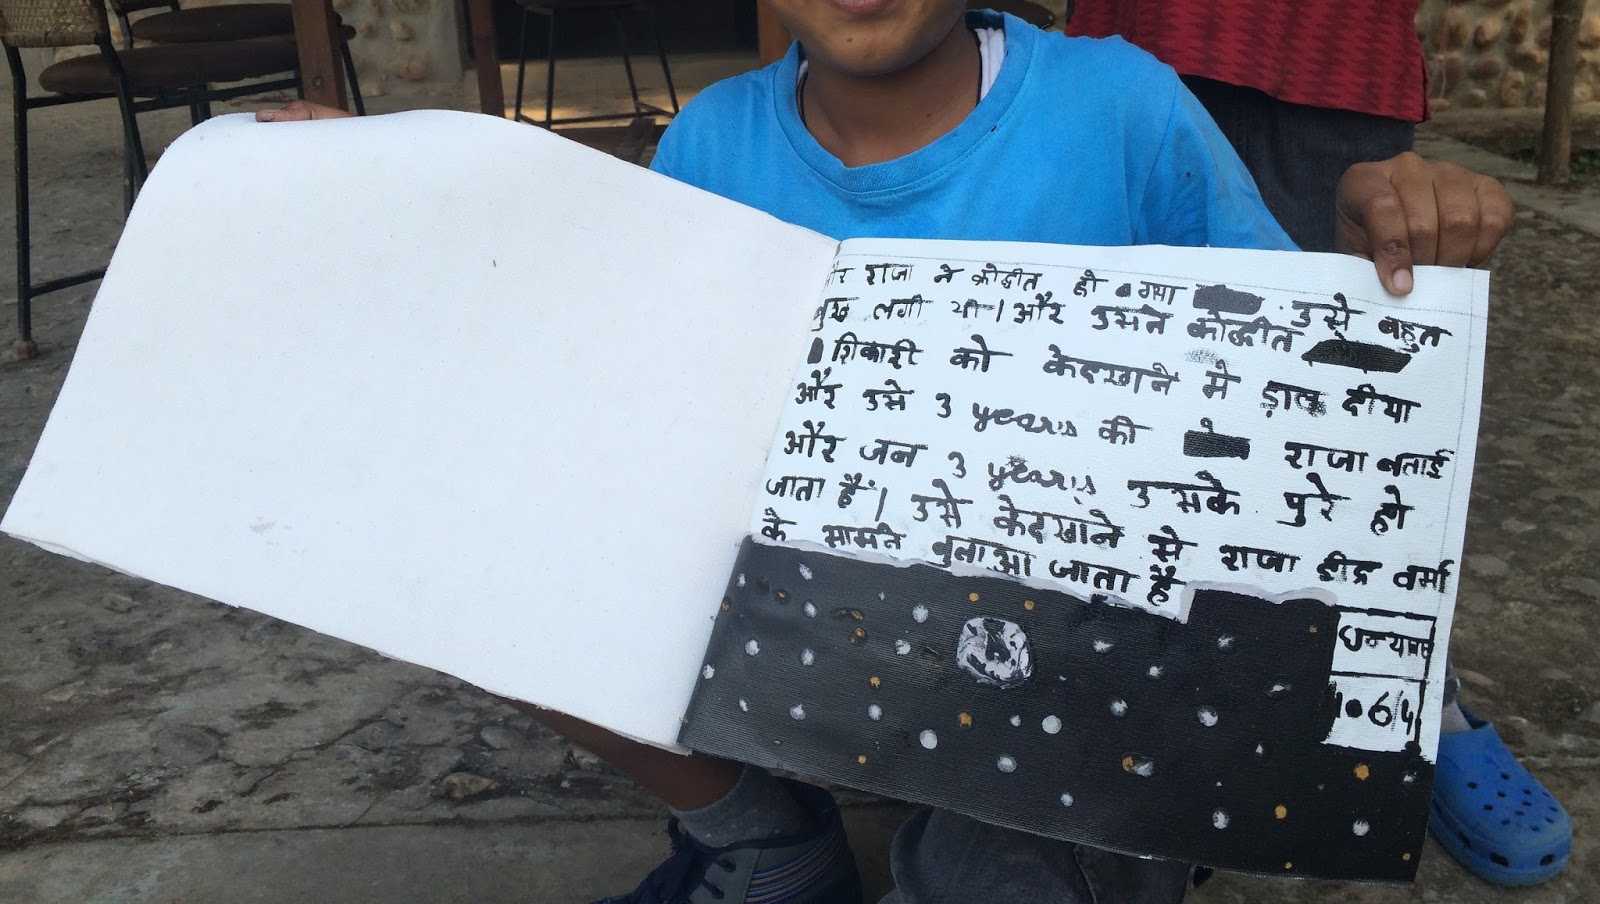 और राजा ने क्रोद्वीत हो गया उसे बहुत
भुख लगी थी। और उसने क्रोद्वीत
शिकारी को केदखाने मे ड़ाल दीया
और उसे 3 years की राजा बताई
और जब 3 years उसके पुरे हो
जाता हैं। उसे केदखाने से राजा वर्मा
के सामने बुलाआ जाता है
1.6/4